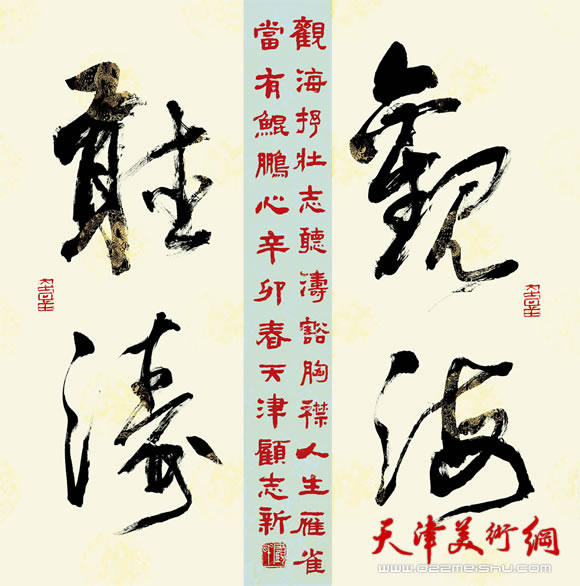 觀海
聽濤
觀海抒壯志聽濤豁胸襟人生雁雀
當有鯤鵬心辛卯春天津顧志新
天津美術網
www.022meishu.com